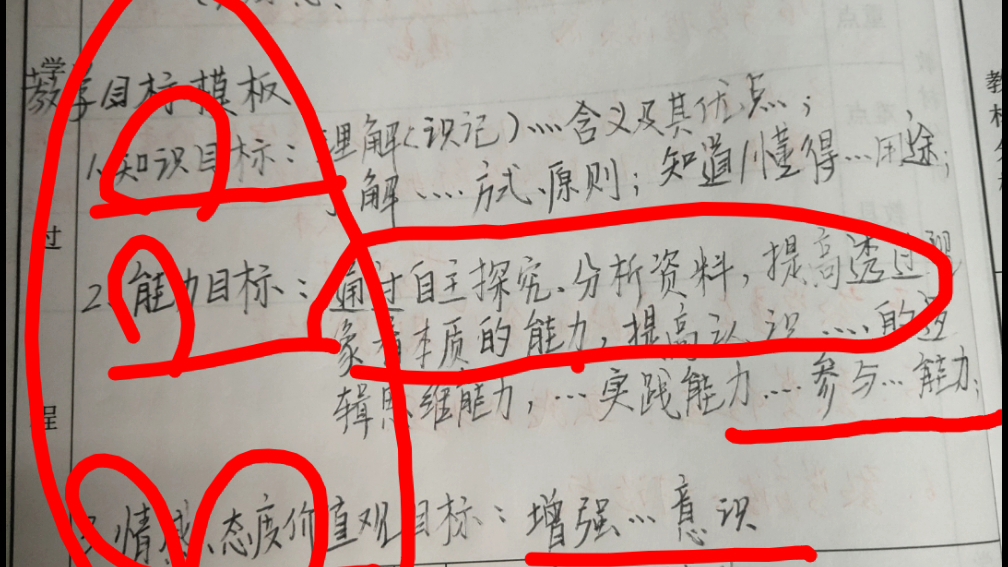 教学目标模板
1.知识目标：理解(识记)……含义及其优点；
了解……方式、原则；知道/懂得…用途；
2.能力目标：通过自主探究、分析资料，提高透过现
象看本质的能力，提高认识……的逻
辑思维能力，…实践能力……参与…能力；
3.情感、态度价值观目标：增强…意识
学
过
程
重点
教